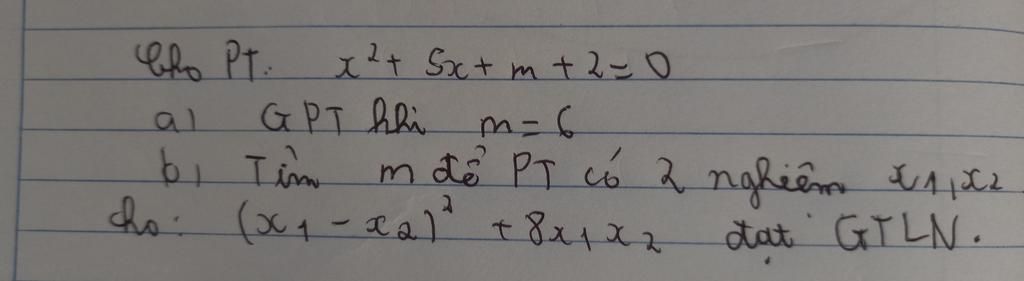 Cho PT: x² + 5x + m + 2 = 0
a) GPT khi m = 6
b) Tìm m để PT có 2 nghiệm x1, x2
cho: (x1 - x2)² + 8x1x2 đạt GTLN.